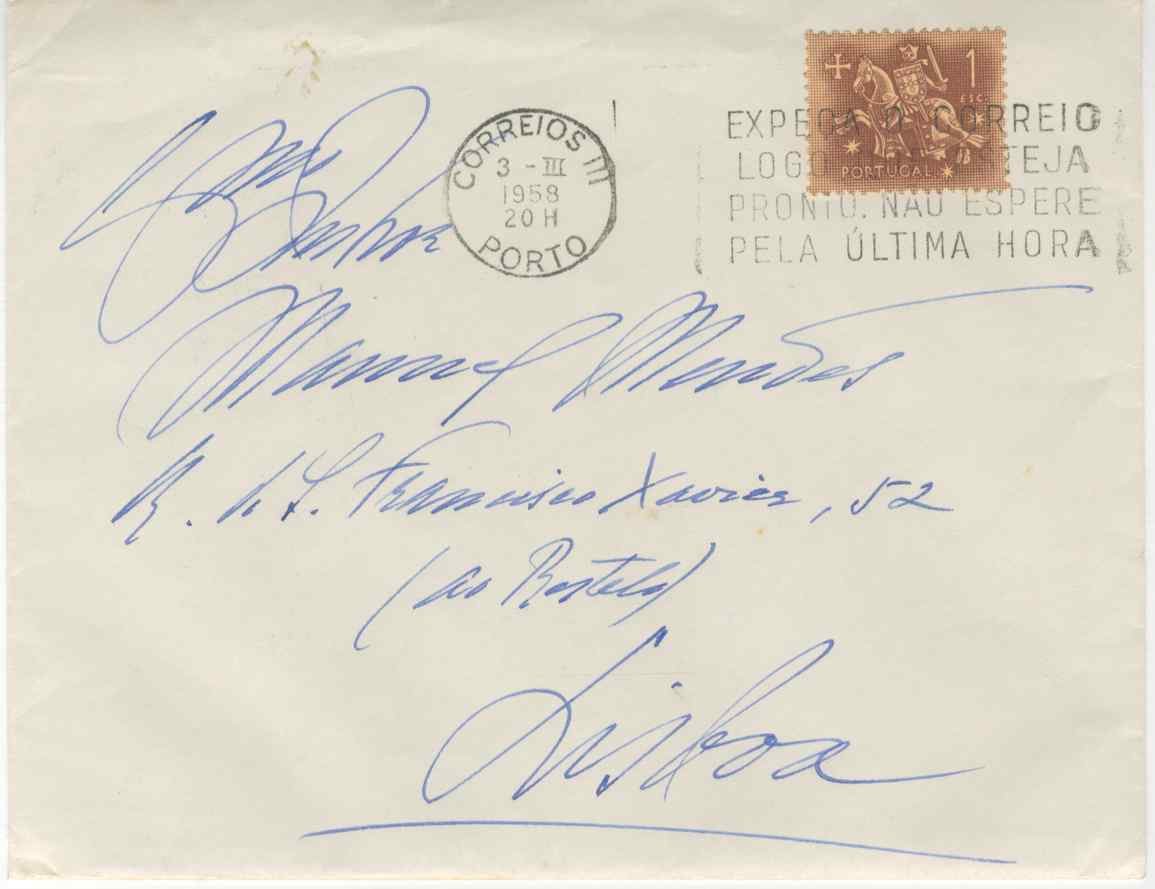 CORREIOS III
3 - III
1958
20 H
PORTO
1
ESC
PORTUGAL
EXPEÇA O CORREIO
LOGO TEJA
PRONTO. NÃO ESPERE
PELA ÚLTIMA HORA
Exmo
Senhor
Manuel Mendes
R. de S. Francisco Xavier, 52
(ao Restelo)
Lisboa